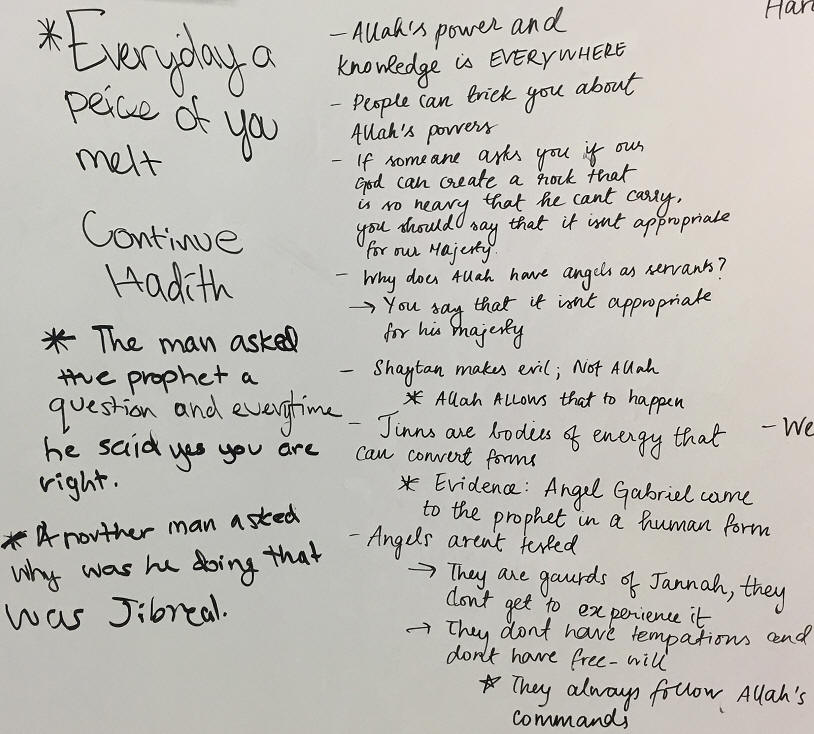 * Everyday a
peice of you
melt
Continue
Hadith
* The man asked
the prophet a
question and everytime
he said yes you are
right.
* Another man asked
why was he doing that
was Jibreal.
- Allah's power and
knowledge is EVERYWHERE
- People can trick you about
Allah's powers
- If someone asks you if our
God can create a rock that
is so heavy that he cant carry,
you should say that it isnt appropriate
for our Majesty.
- Why does Allah have angels as servants?
→ You say that it isnt appropriate
for his majesty
- Shaytan makes evil; Not Allah
* Allah ALLOWS that to happen
- Jinns are bodies of energy that
can convert forms
* Evidence: Angel Gabriel came
to the prophet in a human form
- Angels arent tested
→ They are gaurds of Jannah, they
dont get to experience it
→ They dont have tempations and
dont have free-will
* They always follow Allah's
commands
- We